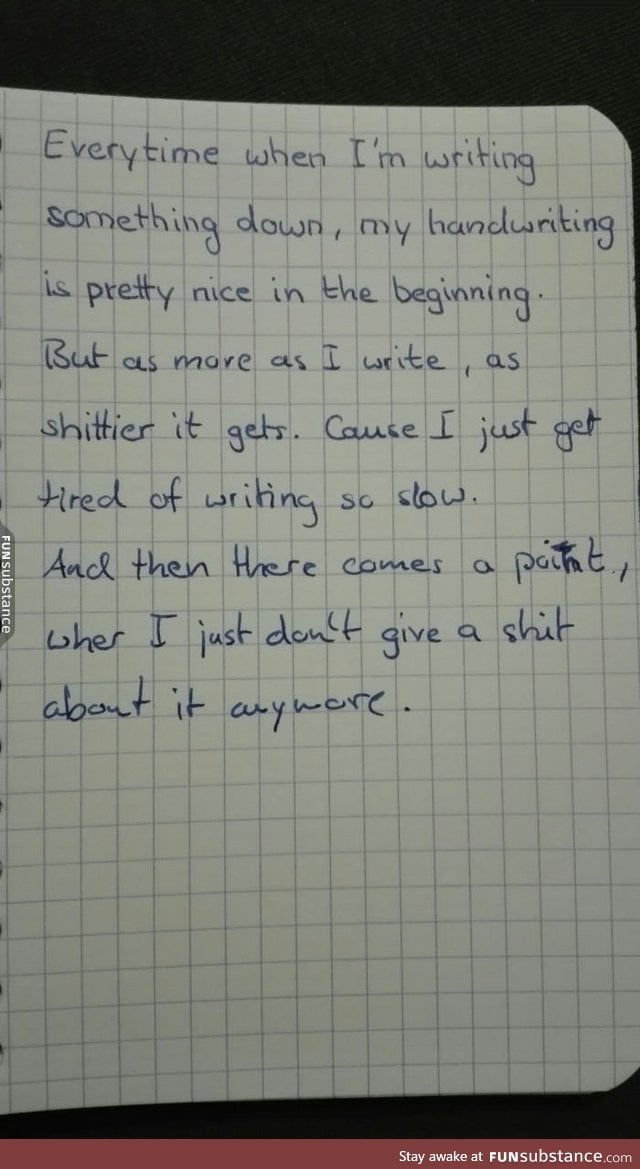 Everytime when I'm writing
something down, my handwriting
is pretty nice in the beginning.
But as more as I write, as
shittier it gets. Cause I just get
tired of writing so slow.
And then there comes a point,
wher I just don't give a shit
about it anymore.
FUNsubstance
Stay awake at FUNsubstance.com